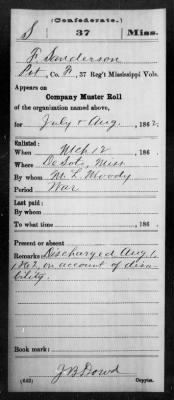 (Confederate.)
S 37 Miss.
F. Sanderson
Pvt, Co. A, 37 Reg't Mississippi Vols.
Appears on
Company Muster Roll
of the organization named above,
for July & Aug., 1862.
Enlisted:
When Mch 12, 186 .
Where DeSoto, Miss.
By whom M. L. Moody
Period War
Last paid:
By whom
To what time , 186 .
Present or absent
Remarks: Discharged Aug. 1,
1862, on account of disa-
bility.
Book mark:
J B Dowd
(642) Copyist.